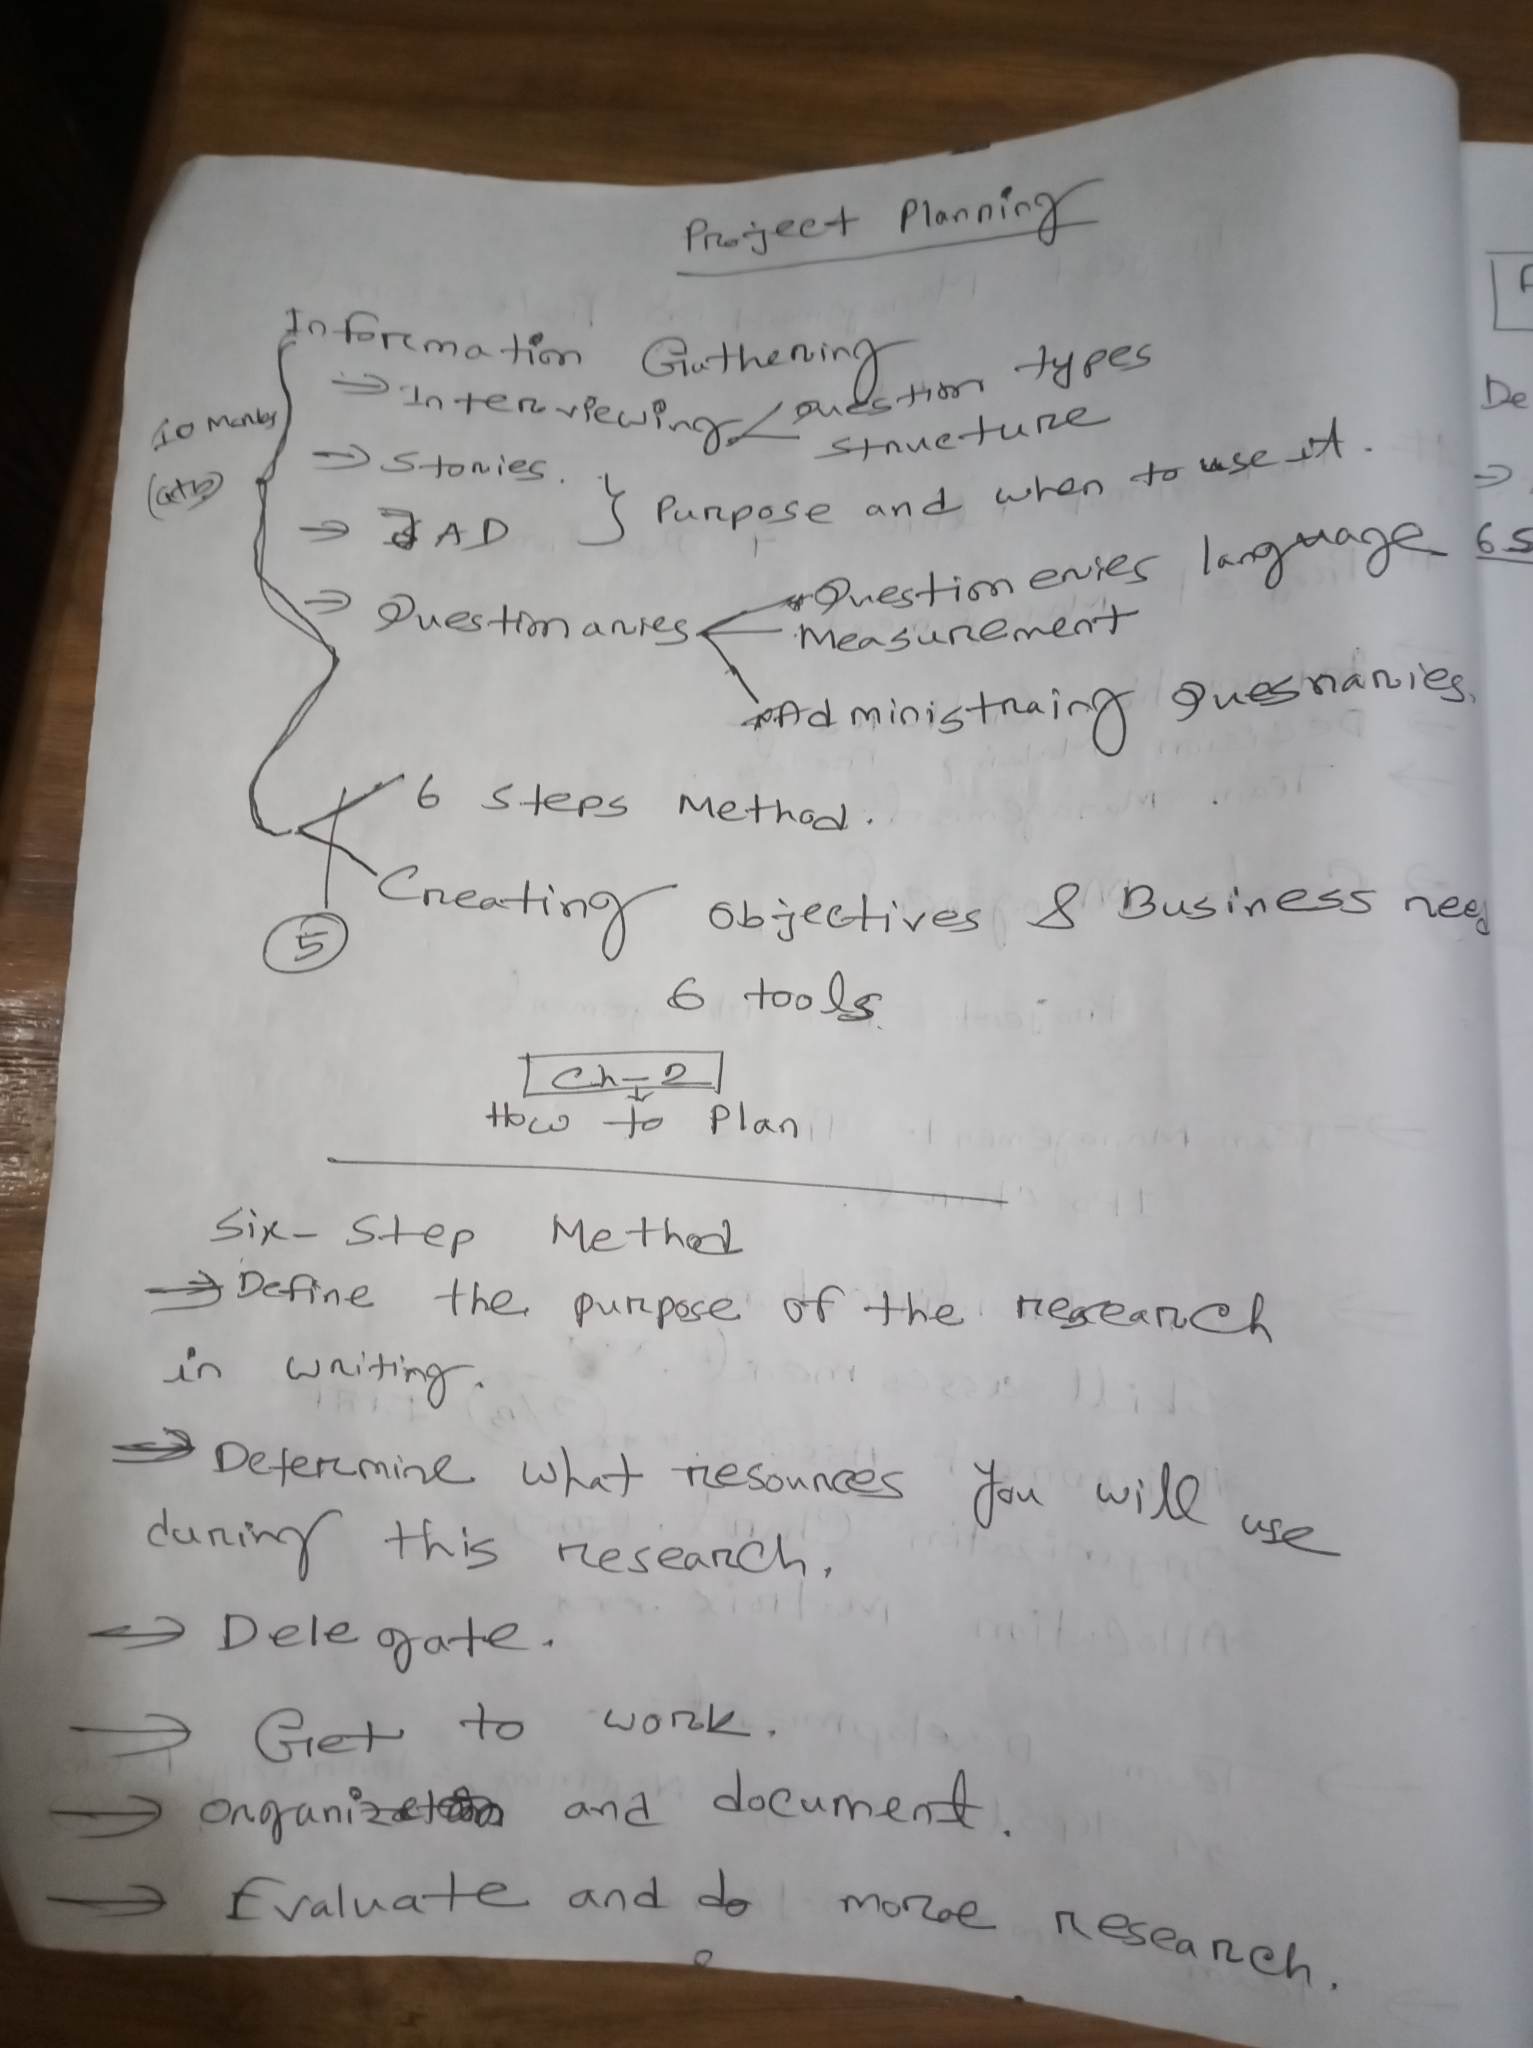 Project Planning
Information Gathering
10 Marks
→ Interviewing < Question types
structure
→ Stories.
→ JAD } Purpose and when to use it.
→ Questionaries
Questioneries language
Measurement
Administraing Quesnaries.
6 steps Method.
Creating objectives & Business need
5
6 tools.
Ch-2
How to Plan
Six-Step Method
→ Define the purpose of the research
in writing.
→ Determine what resources you will use
during this research.
→ Delegate.
→ Get to work.
→ Organize and document.
→ Evaluate and do more research.
De
6 S